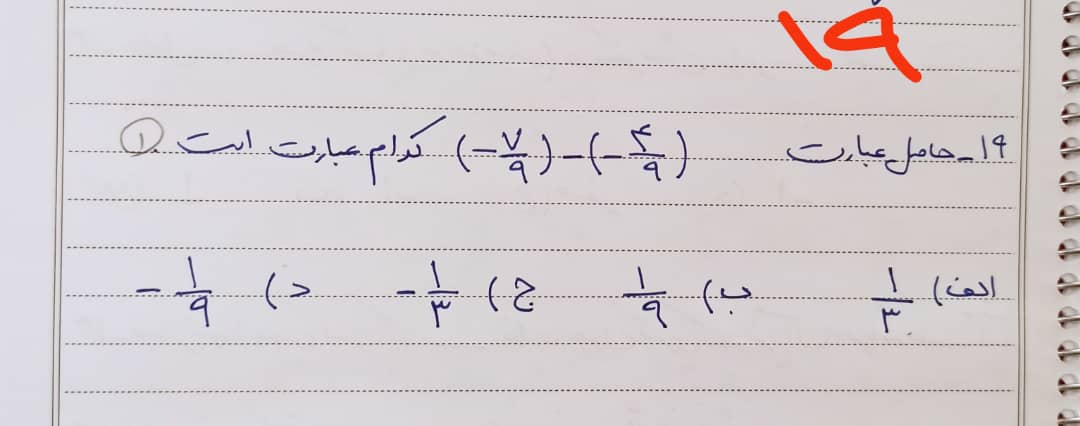 ۱۹
۱۹- حاصل عبارت (-۷/۹)-(-۴/۹) کدام عبارت است ۱
الف) ۱/۳ ب) ۱/۹ ج) -۱/۳ د) -۱/۹